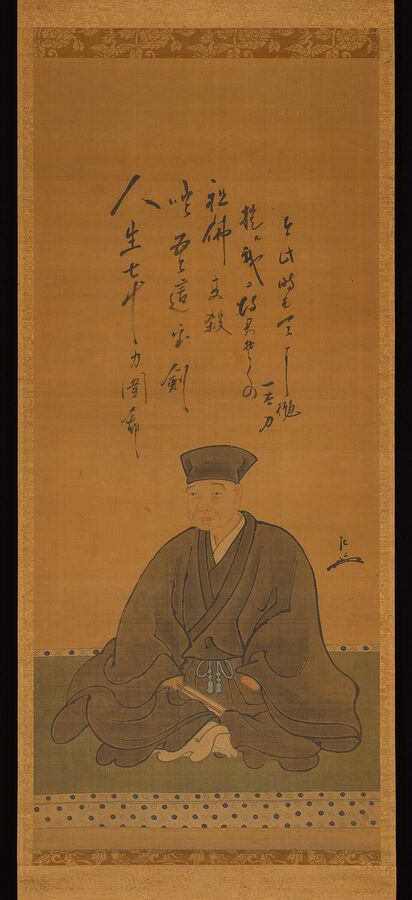 人生七十力圍希
咄吾這宝剣
祖佛共殺
提ル我カ得具足の
一太刀
今此時そ天に抛